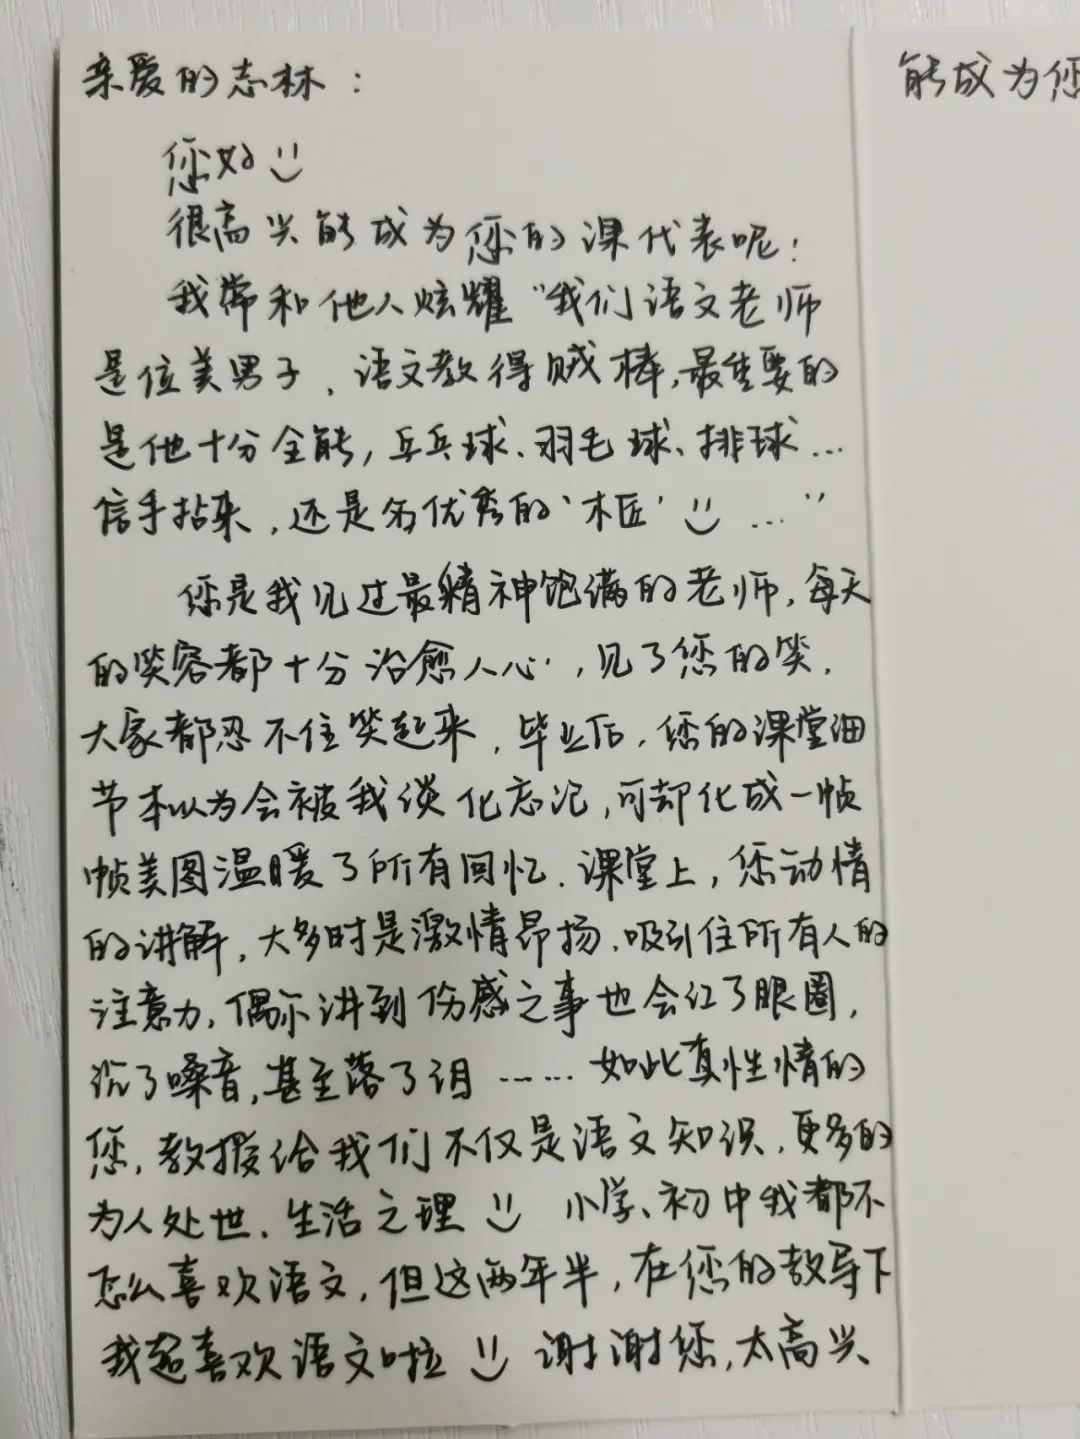 亲爱的志林：
您好
很高兴能成为您的课代表呢！
我常和他人炫耀“我们语文老师
是位美男子、语文教得贼棒，最重要的
是他十分全能，乒乓球、羽毛球、排球…
信手拈来，还是名优秀的‘木匠’ …”
您是我见过最精神饱满的老师，每天
的笑容都十分治愈人心，见了您的笑，
大家都忍不住笑起来，毕业后，您的课堂细
节本以为会被我淡化忘记，可却化成一帧
帧美图温暖了所有回忆．课堂上，您动情
的讲解，大多时是激情昂扬，吸引住所有人的
注意力，偶尔讲到伤感之事也会红了眼圈，
沉了嗓音，甚至落了泪……如此真性情的
您，教授给我们不仅是语文知识，更多的
为人处世、生活之理 小学、初中我都不
怎么喜欢语文，但这两年半，在您的教导下
我超喜欢语文啦 谢谢您，太高兴
能成为您